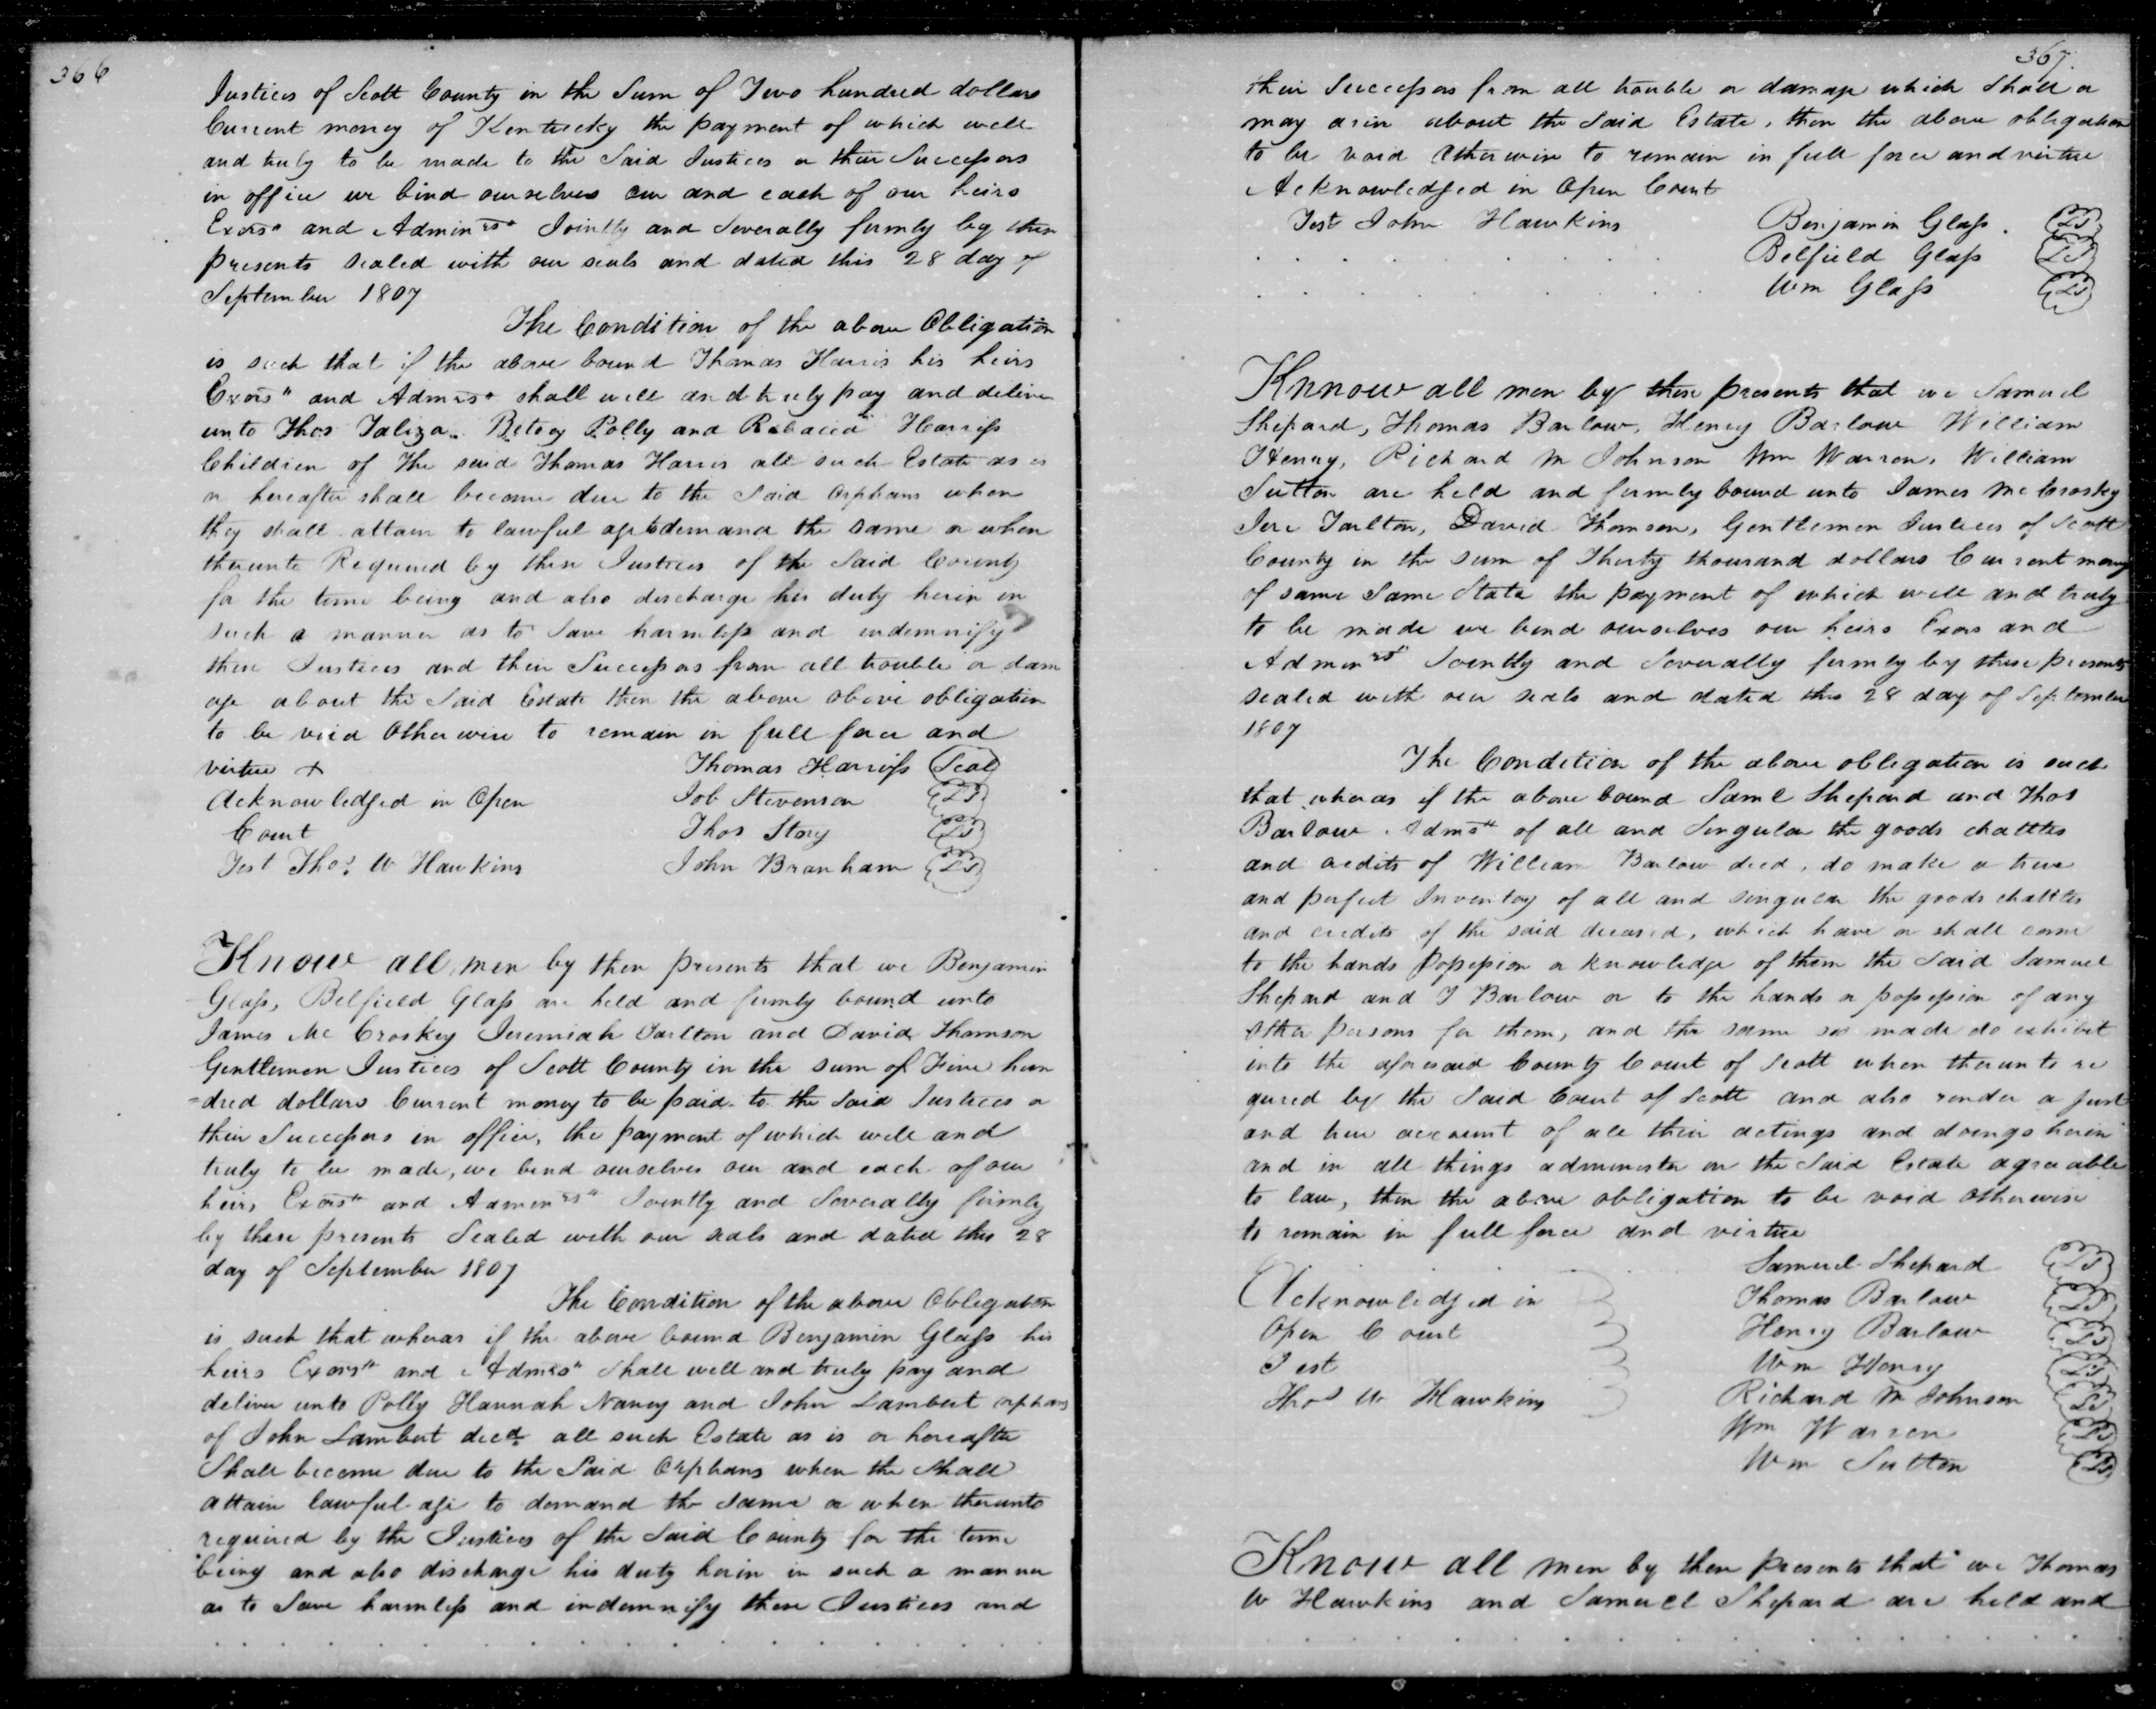 366
Justices of Scott County in the Sum of Two hundred dollars
Current money of Kentucky the payment of which well
and truly to be made to the Said Justices or their Successors
in office we bind ourselves our and each of our heirs
Exors" and Admin rs" Jointly and Severally firmly by these
presents sealed with our seals and dated this 28 day of
September 1807
The Condition of the above Obligation
is such that if the above bound Thomas Harris his heirs
Exors" and Admrs" shall well and truly pay and deliver
unto Thos Taliza Betsey Polly and Rebacca Harriss
Children of The said Thomas Harris all such Estate as is
or hereafter shall become due to the Said Orphans when
they shall attain to lawful age to demand the same or when
thereunto Required by these Justices of the Said County
for the time being and also discharge his duty herein in
such a manner as to Save harmless and indemnify
these Justices and their Successors from all trouble or dam
age about the Said Estate then the above above obligation
to be void Otherwise to remain in full force and
virtue +
Thomas Harriss Seal
Acknowledged in Open
Job Stevenson LS
Court
Thos Story LS
Test Thos W Hawkins
John Branham LS
Know all men by these presents that we Benjamin
Glass, Belfield Glass are held and firmly bound unto
James Mc Croskey Jeremiah Tarlton and David Thomson
Gentlemen Justices of Scott County in the sum of Five hun
=dred dollars Current money to be paid to the Said Justices or
their Successors in office, the payment of which well and
truly to be made, we bind ourselves our and each of our
heirs Exors" and Admin rs" Jointly and Severally firmly
by these presents Sealed with our seals and dated this 28
day of September 1807
The Condition of the above Obligation
is such that wheras if the above bound Benjamin Glass his
heirs Exors" and Admrs" Shall well and truly pay and
deliver unto Polly Hannah Nancy and John Lambert orphans
of John Lambert decd all such Estate as is or hereafter
Shall become due to the Said Orphans when the shall
attain lawful age to demand the same or when therunto
required by the Justices of the Said County for the time
being and also discharge his duty herin in such a manner
as to Save harmless and indemnify these Justices and
367
their Successors from all trouble or damage which Shall or
may arise about the Said Estate, then the above obligation
to be void Otherwise to remain in full force and virtue
Acknowledged in Open Court
Test John Hawkins
Benjamin Glass. LS
Belfield Glass LS
Wm Glass LS
Knnow all men by these presents that we Samuel
Shepard, Thomas Barlow, Henry Barlow William
Henry, Richard M Johnson Wm Warren, William
Sutton are held and firmly bound unto James McCrosky
Jere Tarlton, David Thomson, Gentlemen Justices of Scott
County in the sum of Thirty thousand dollars Current money
of same Same State the payment of which well and truly
to be made we bind ourselves our heirs Exors and
Admin rs Jointly and Severally firmly by these presents
sealed with our seals and dated this 28 day of September
1807
The Condition of the above obligation is such
that wheras if the above bound Saml Shepard and Thos
Barlow Adms" of all and Singular the goods chattles
and credits of William Barlow decd, do make a true
and perfect Inventory of all and singular the goods chattles
and credits of the said deceased, which have or shall come
to the hands possession or knowledge of them the Said Samuel
Shepard and T Barlow or to the hands or possession of any
other persons for them, and the same so made do exhibit
into the aforesaid County Court of Scott when therunto re
qured by the Said Court of Scott and also render a just
and true account of all their actings and doings herein
and in all things administer on the Said Estate agreeable
to law, then the above obligation to be void otherwise
to remain in full force and virtue
Samuel Shepard LS
Acknowledged in
Thomas Barlow LS
Open Court
Henry Barlow LS
Test
Wm Henry LS
Thos W Hawkins
Richard M Johnson LS
Wm Warren LS
Wm Sutton LS
Know all men by these presents that we Thomas
W Hawkins and Samuel Shepard are held and